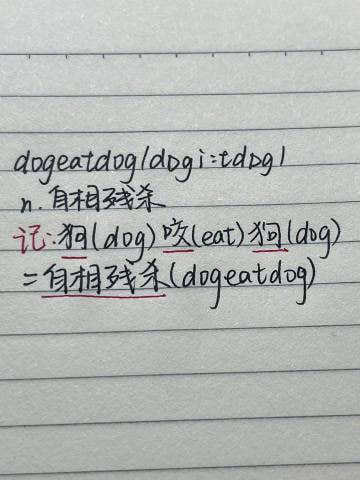 dogeatdog/dɒgi:tdɒg/
n. 自相残杀
记:狗(dog)咬(eat)狗(dog)
=自相残杀(dogeatdog)